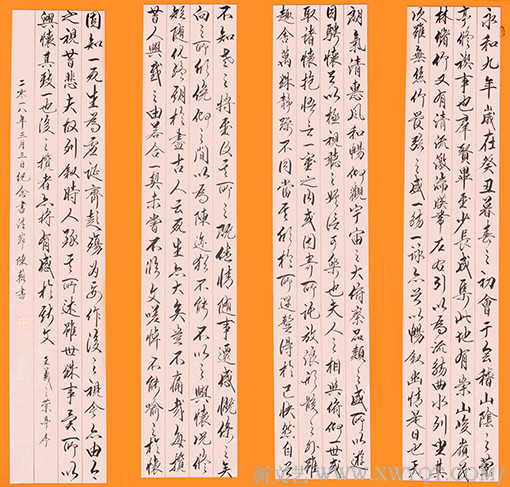 永和九年歲在癸丑暮春之初會于會稽山陰之蘭
亭修禊事也群賢畢至少長咸集此地有崇山峻嶺
林修竹又有清流激湍映帶左右引以為流觴曲水列坐其
次雖無絲竹管弦之盛一觴一詠亦足以暢敘幽情是日也天
朗氣清惠風和暢仰觀宇宙之大俯察品類之盛所以遊
目騁懷足以極視聽之娛信可樂也夫人之相與俯仰一世或
取諸懷抱悟言一室之內或因寄所託放浪形骸之外雖
趣舍萬殊靜躁不同當其欣於所遇暫得於己快然自足
不知老之將至及其所之既倦情隨事遷感慨係之矣
向之所欣俛仰之間以為陳迹猶不能不以之興懷況修
短隨化終期於盡古人云死生亦大矣豈不痛哉每攬
昔人興感之由若合一契未嘗不臨文嗟悼不能喻之於懷
固知一死生為虛誕齊彭殤為妄作後之視今亦由今
之視昔悲夫故列敘時人錄其所述雖世殊事異所以
興懷其致也後之攬者亦將有感於斯文 王羲之蘭亭序
二零一八年三月三日紀念書法節 陳書
新文艺